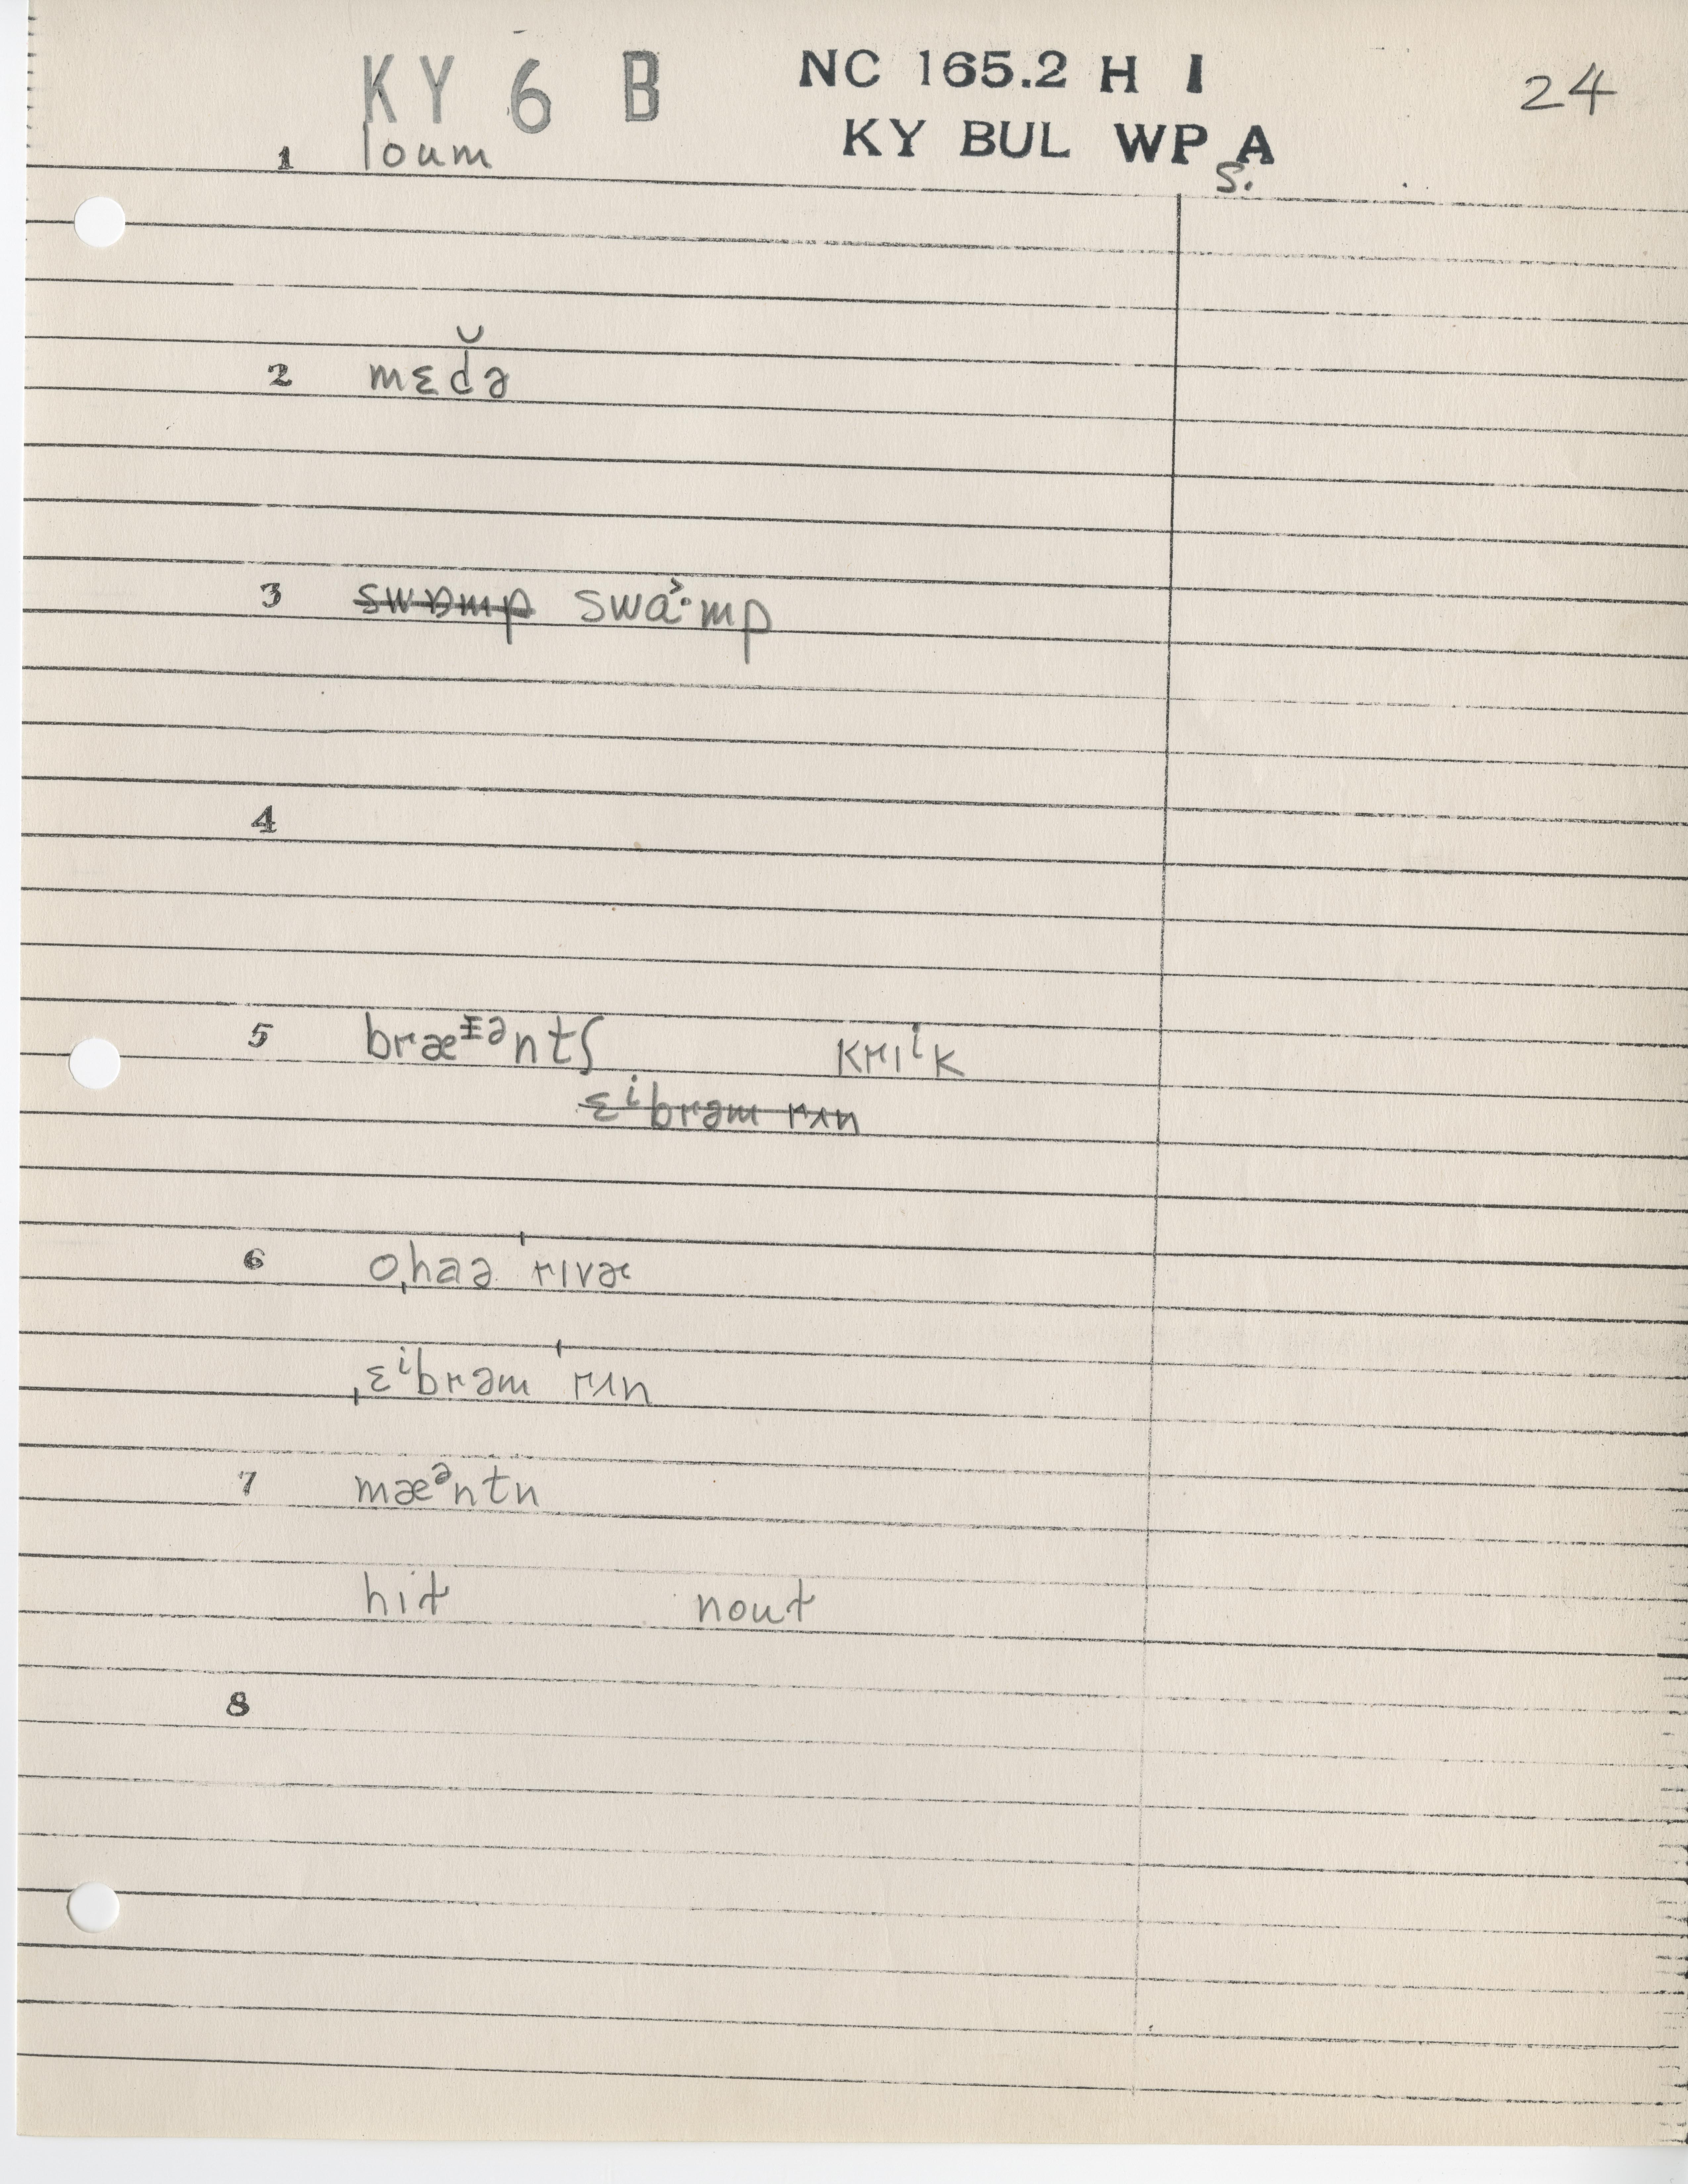 KY 6 B NC 165.2 H I 24
KY BUL WP A
1 loum S.
2 mɛd̆ə
3 swɒmp swɑ˃·mp
4
5 bræᵻᵊntʃ krɪⁱk
ɛⁱbrəm rʌn
6 oˌhaə ˈrɪvɚ
ˌɛⁱbrəm ˈrʌn
7 mæᵊntn
hɪɫ nouɫ
8